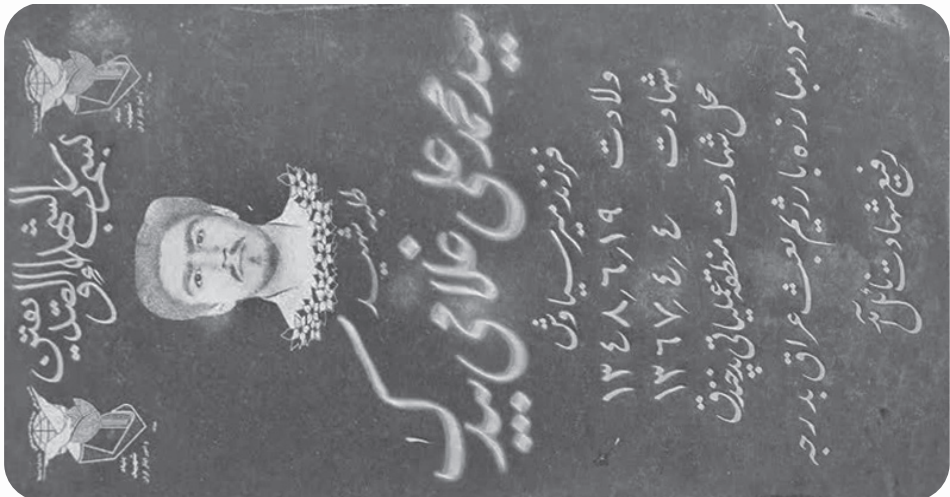 بسم رب الشهداء و الصدیقین
طلبه شهید
سید محمد علی فلاحی
فرزند میر سیاوش
ولادت ۱۳۴۸٫۶٫۱۹
شهادت ۱۳۶۷٫۴٫۴
محل شهادت منطقه عملیاتی پد خندق
که در مبارزه با رژیم بعث عراق بدرجه
رفیع شهادت نائل آمد